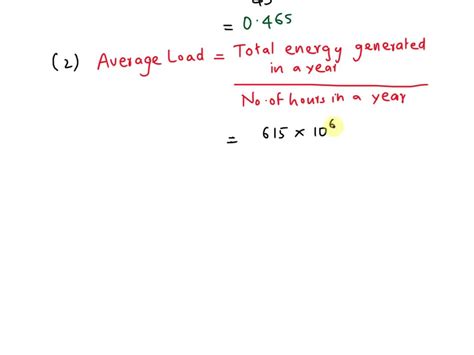 = 0.465
(2) Average Load = Total energy generated
in a year
No. of hours in a year
= 615 × 10⁶